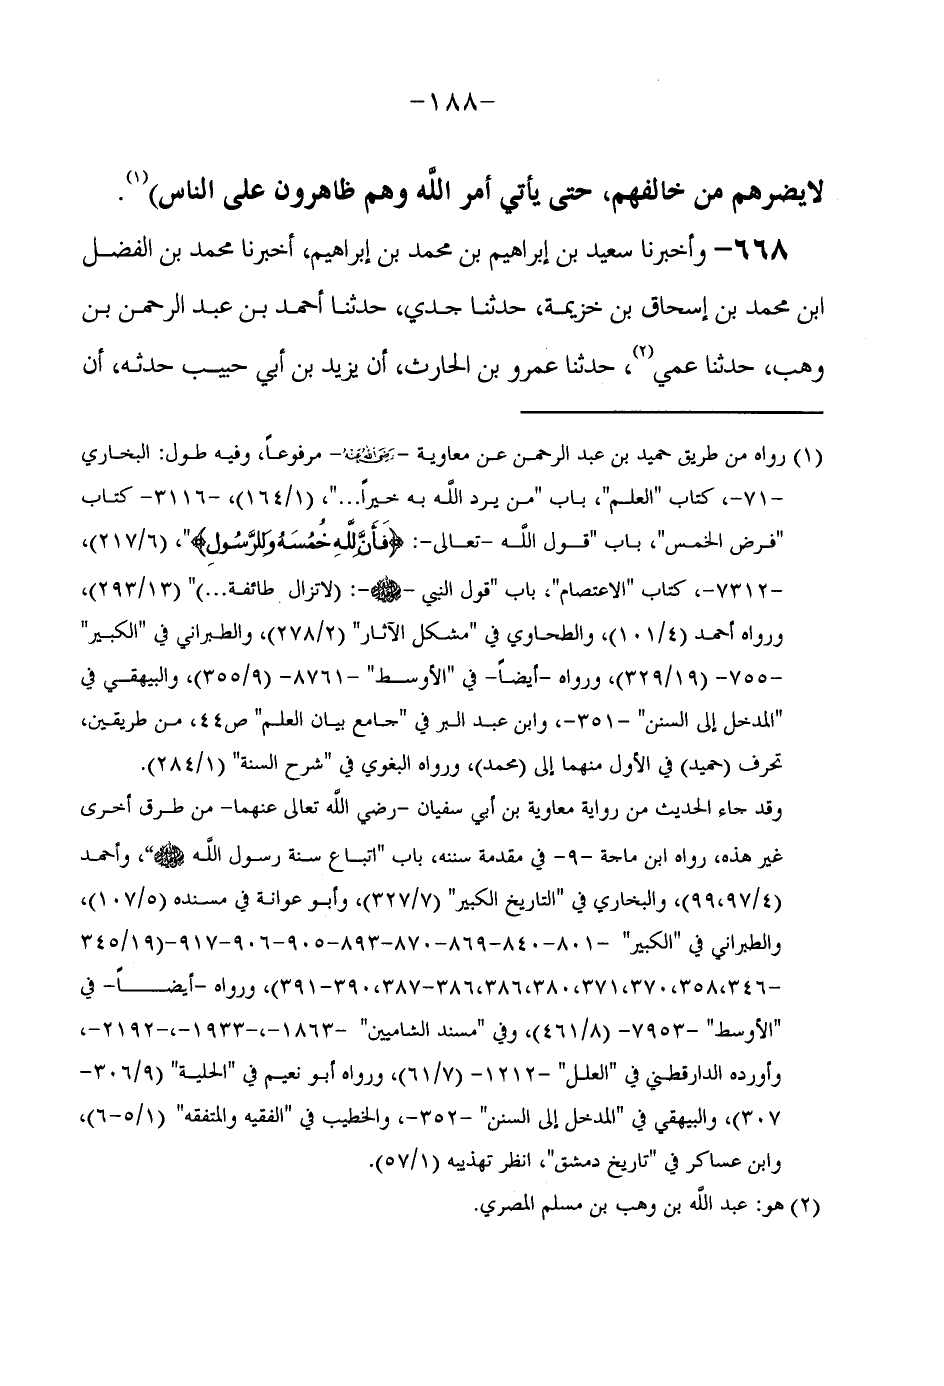 -١٨٨-
لايضرهم من خالفهم، حتى يأتي أمر اللَّه وهم ظاهرون على الناس)(١).
٦٦٨- وأخبرنا سعيد بن إبراهيم بن محمد بن إبراهيم، أخبرنا محمد بن الفضـل
ابن محمد بن إسحاق بن خزيمـة، حدثنـا جـدي، حدثنـا أحمـد بـن عبـد الرحمـن بـن
وهب، حدثنا عمي(٢)، حدثنا عمرو بن الحارث، أن يزيد بن أبي حبيـب حدثـه، أن
(١) رواه من طريق حميد بن عبد الرحمـن عـن معاوية -رَضِيَ اللهُ عَنْهُ- مرفوعـاً، وفيه طـول: البخـاري
-٧١-، كتاب "العلـم"، بـاب "مـن يـرد اللَّـه بـه خـيراً..."، (١٦٤/١)، -٣١١٦- كتـاب
"فـرض الخمـس"، بـاب "قـول اللَّـه -تعـالى-: ﴿فَأَنَّ لِلَّهِ خُمُسَهُ وَلِلرَّسُولِ﴾"، (٢١٧/٦)،
-٧٣١٢-، كتاب "الاعتصام"، باب "قول النبي -ﷺ-: (لاتزال طائفـة...)" (٢٩٣/١٣)،
ورواه أحمـد (١٠١/٤)، والطحاوي في "مشكل الآثـار" (٢٧٨/٢)، والطـبراني في "الكبـير"
-٧٥٥- (٣٢٩/١٩)، ورواه -أيضـاً- في "الأوسـط" -٨٧٦١- (٣٥٥/٩)، والبيهقـي في
"المدخل إلى السنن" -٣٥١-، وابن عبـد الـبر في "جـامع بيـان العلـم" ص٤٤، مـن طريقـين،
تحرف (حميد) في الأول منهمـا إلى (محمد)، ورواه البغوي في "شرح السنة" (٢٨٤/١).
وقـد جاء الحديث من روايـة معاوية بن أبي سفيان -رضي اللَّه تعالى عنهمـا- مـن طـرق أخـرى
غير هذه، رواه ابن ماجة -٩- في مقدمة سننه، باب "اتبـاع سنة رسـول اللَّـه ﷺ"، وأحمـد
(٩٩،٩٧/٤)، والبخاري في "التاريخ الكبير" (٣٢٧/٧)، وأبـو عوانـة في مسنده (١٠٧/٥)،
والطبراني في "الكبير" -٨٠١-٨٤٠-٨٦٩-٨٧٠-٨٩٣-٩٠٥-٩٠٦-٩١٧-(٣٤٥/١٩
-٣٩٠،٣٨٧-٣٨٦،٣٨٦،٣٨٠،٣٧١،٣٧٠،٣٥٨،٣٤٦-٣٩١)، ورواه -أيضـــاً- في
"الأوسط" -٧٩٥٣- (٤٦١/٨)، وفي "مسند الشاميين" -١٨٦٣-،-١٩٣٣-،-٢١٩٢-،
وأورده الدارقطـني في "العلـل" -١٢١٢- (٦١/٧)، ورواه أبـو نعيـم في "الحليـة" (٣٠٦/٩-
٣٠٧)، والبيهقي في "المدخل إلى السنن" -٣٥٢-، والخطيب في "الفقيه والمتفقه" (٥/١-٦)،
وابن عساكر في "تاريخ دمشق"، انظر تهذيبه (٥٧/١).
(٢) هو: عبد اللَّه بن وهب بن مسلم المصري.